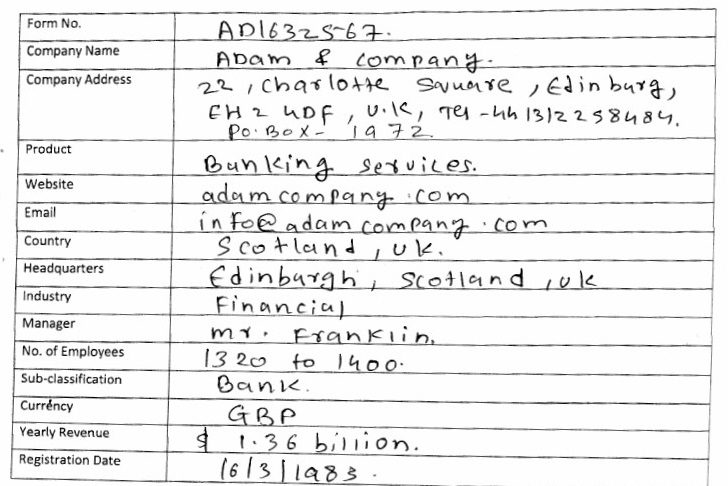 Form No. AD16325-67.
Company Name Adam & Company.
Company Address 22, Charlotte Square, Edinburg,
EH2 4DF, U.K, Tel -44 1312258484.
PO. Box - 1972.
Product Banking services.
Website adamcompany.com
Email info@adamcompany.com
Country Scotland, UK.
Headquarters Edinburgh, Scotland, UK
Industry Financial
Manager Mr. Franklin.
No. of Employees 1320 to 1400.
Sub-classification Bank.
Currency GBP
Yearly Revenue $ 1.36 billion.
Registration Date 16/3/1983.